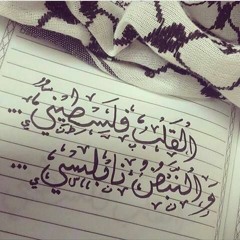 القَلبُ فِلَسطِيني...
وَالنَّبضُ نابُلسي...